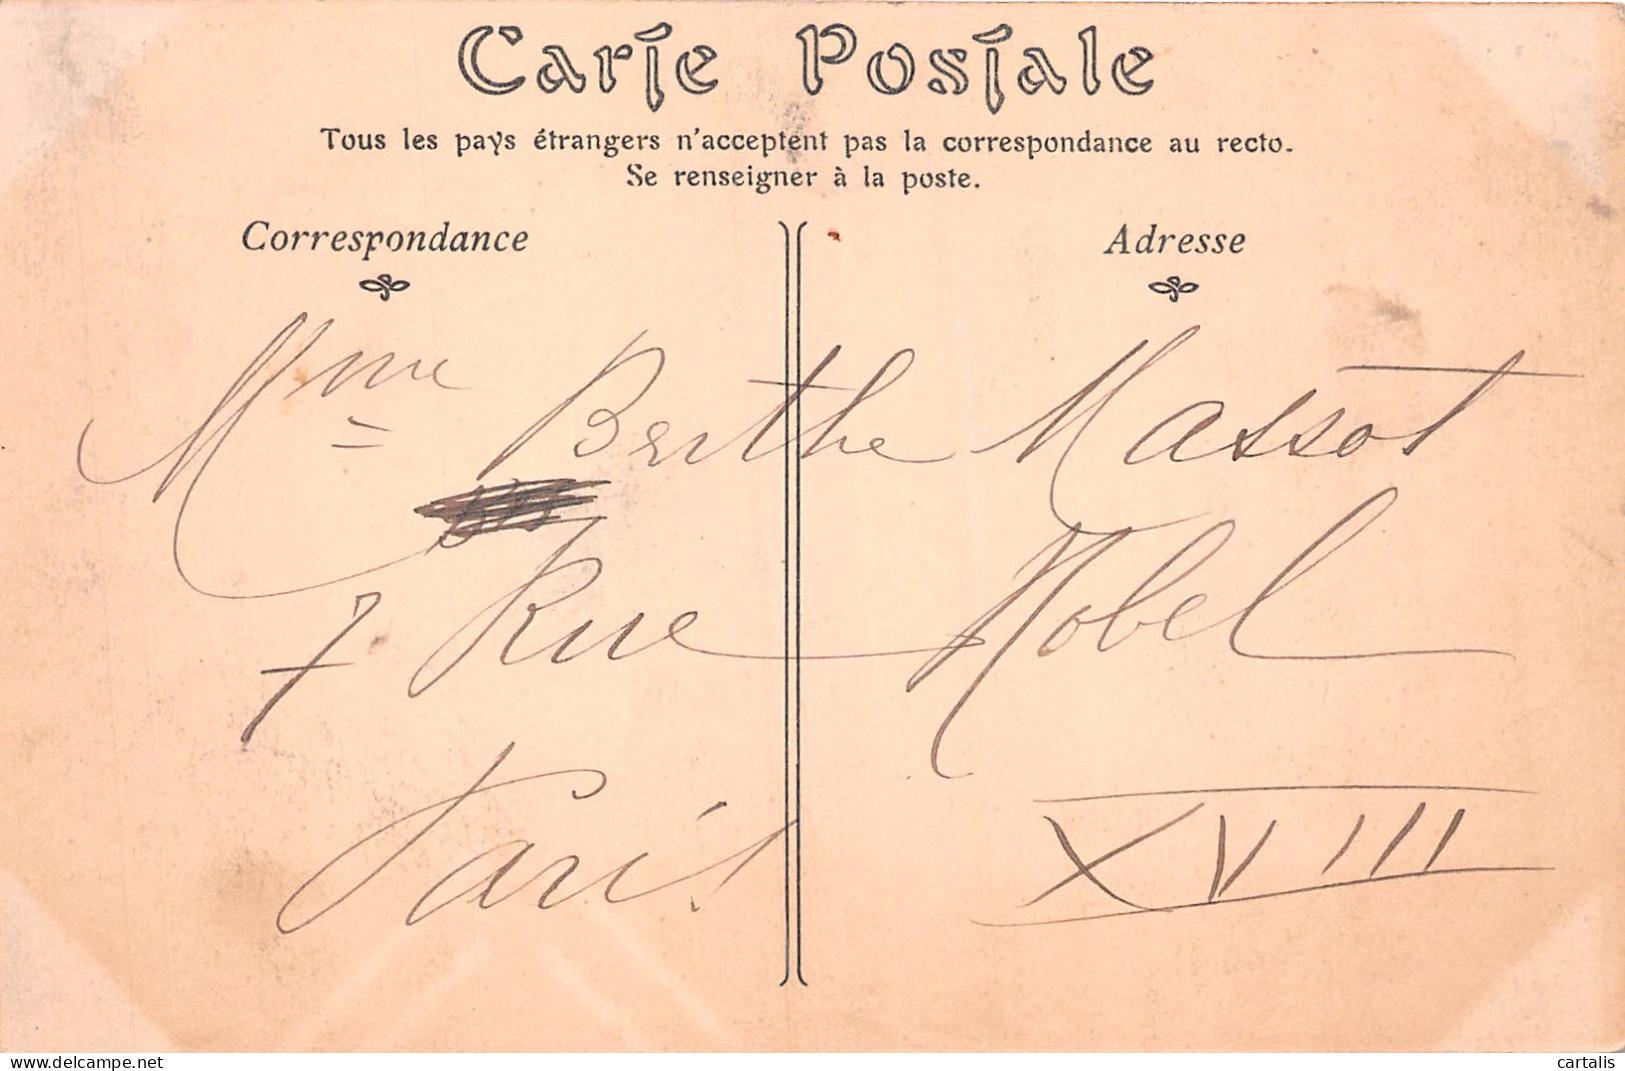 Carte Postale
Tous les pays étrangers n'acceptent pas la correspondance au recto.
Se renseigner à la poste.
Correspondance Adresse
Mme Berthe Massot
7 Rue Nobel
Paris XVIII
cartalis